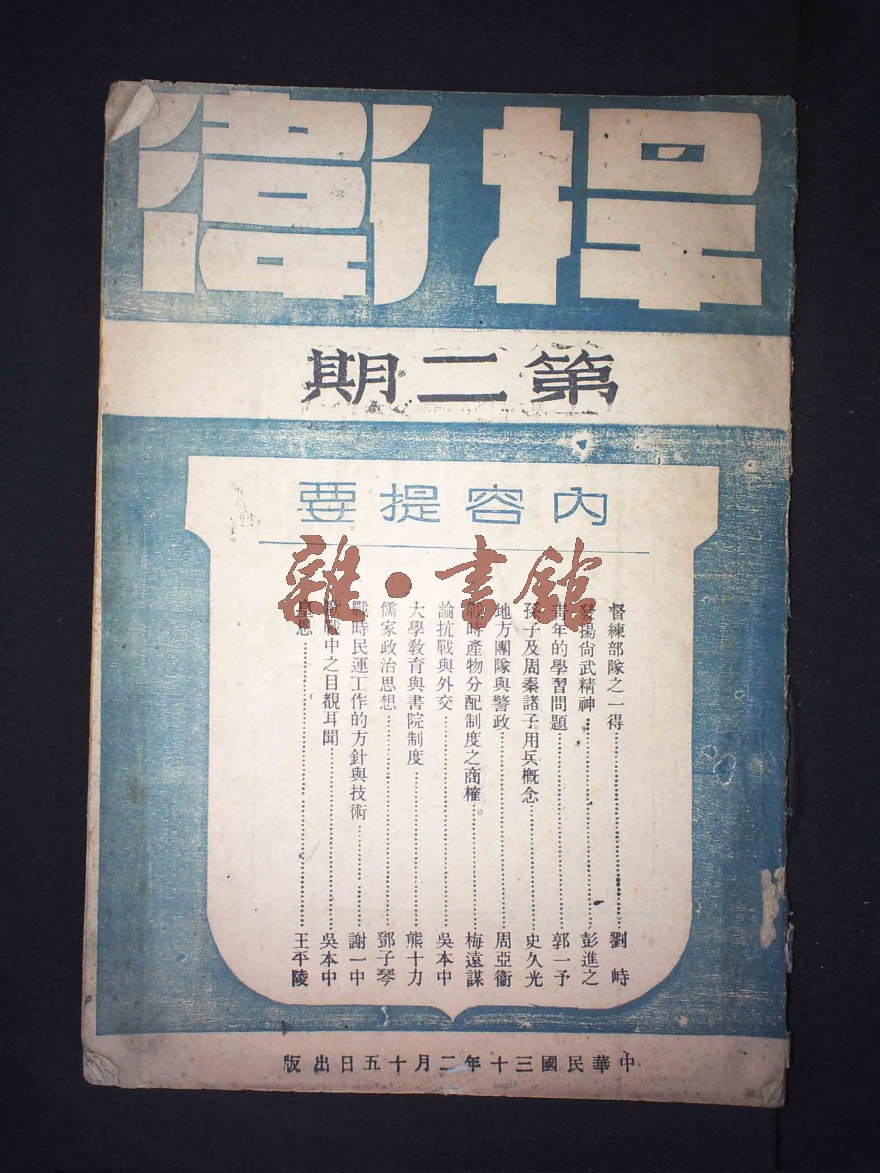 捍衛
第二期
內容提要
雜·書館
督練部隊之一得……劉峙
發揚尚武精神……彭進之
青年的學習問題……郭一予
孫子及周秦諸子用兵概念……史久光
地方團隊與警政……周亞衞
戰時產物分配制度之商榷……梅遠謀
論抗戰與外交……吳本中
大學教育與書院制度……熊十力
儒家政治思想……鄧子琴
戰時民運工作的方針與技術……謝一中
戰中之目覩耳聞……吳本中
皇恩……王平陵
中華民國三十年二月十五日出版